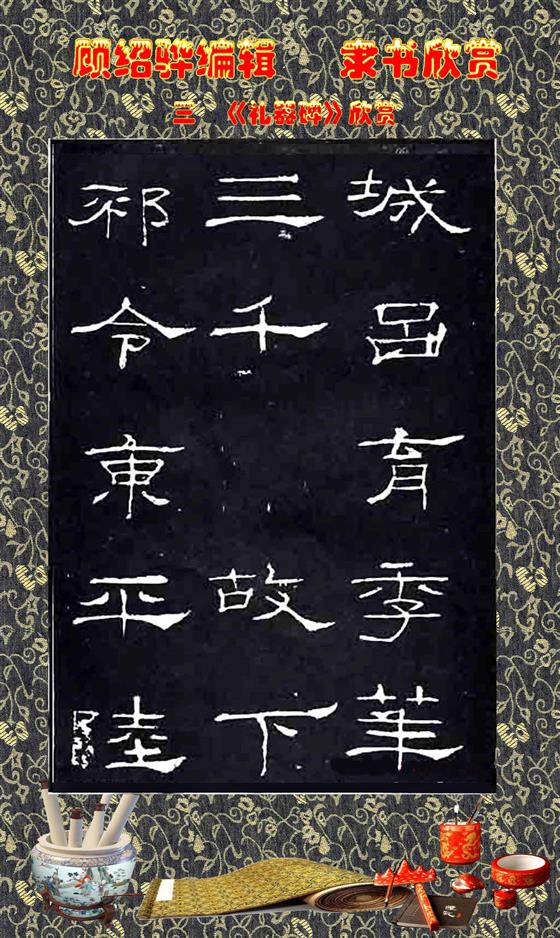 顾绍骅编辑 隶书欣赏
三 《礼器碑》欣赏
城呂育季華
三千故下
邳令東平陸